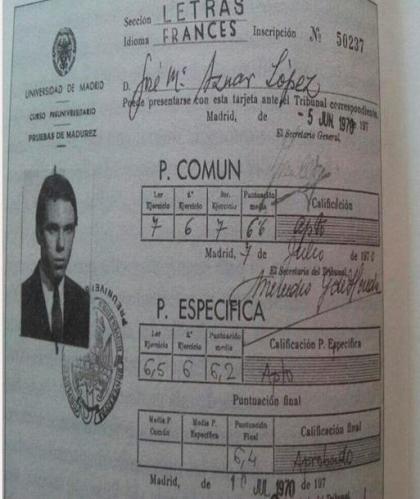 Sección LETRAS
Idioma FRANCES Inscripción Nº 50237
UNIVERSIDAD DE MADRID
CURSO PREUNIVERSITARIO
PRUEBAS DE MADUREZ
D. José Mª Aznar López
Puede presentarse con esta tarjeta ante el Tribunal correspondiente.
Madrid, de - 5 JUN. 1970 197
El Secretario General,
P. COMUN
1.er Ejercicio 2.º Ejercicio 3er. Ejercicio Puntuación media Calificación
7 6 7 6'6 apto
Madrid, 7 de Julio de 1970
El Secretario del Tribunal,
P. ESPECIFICA
1.er Ejercicio 2.º Ejercicio Puntuación media Calificación P. Específica
6,5 6 6,2 Apto
Puntuación final
Media P. Común Media P. Específica Puntuación Final Calificación final
6,4 Aprobado
Madrid, de JUL 1970 de 197